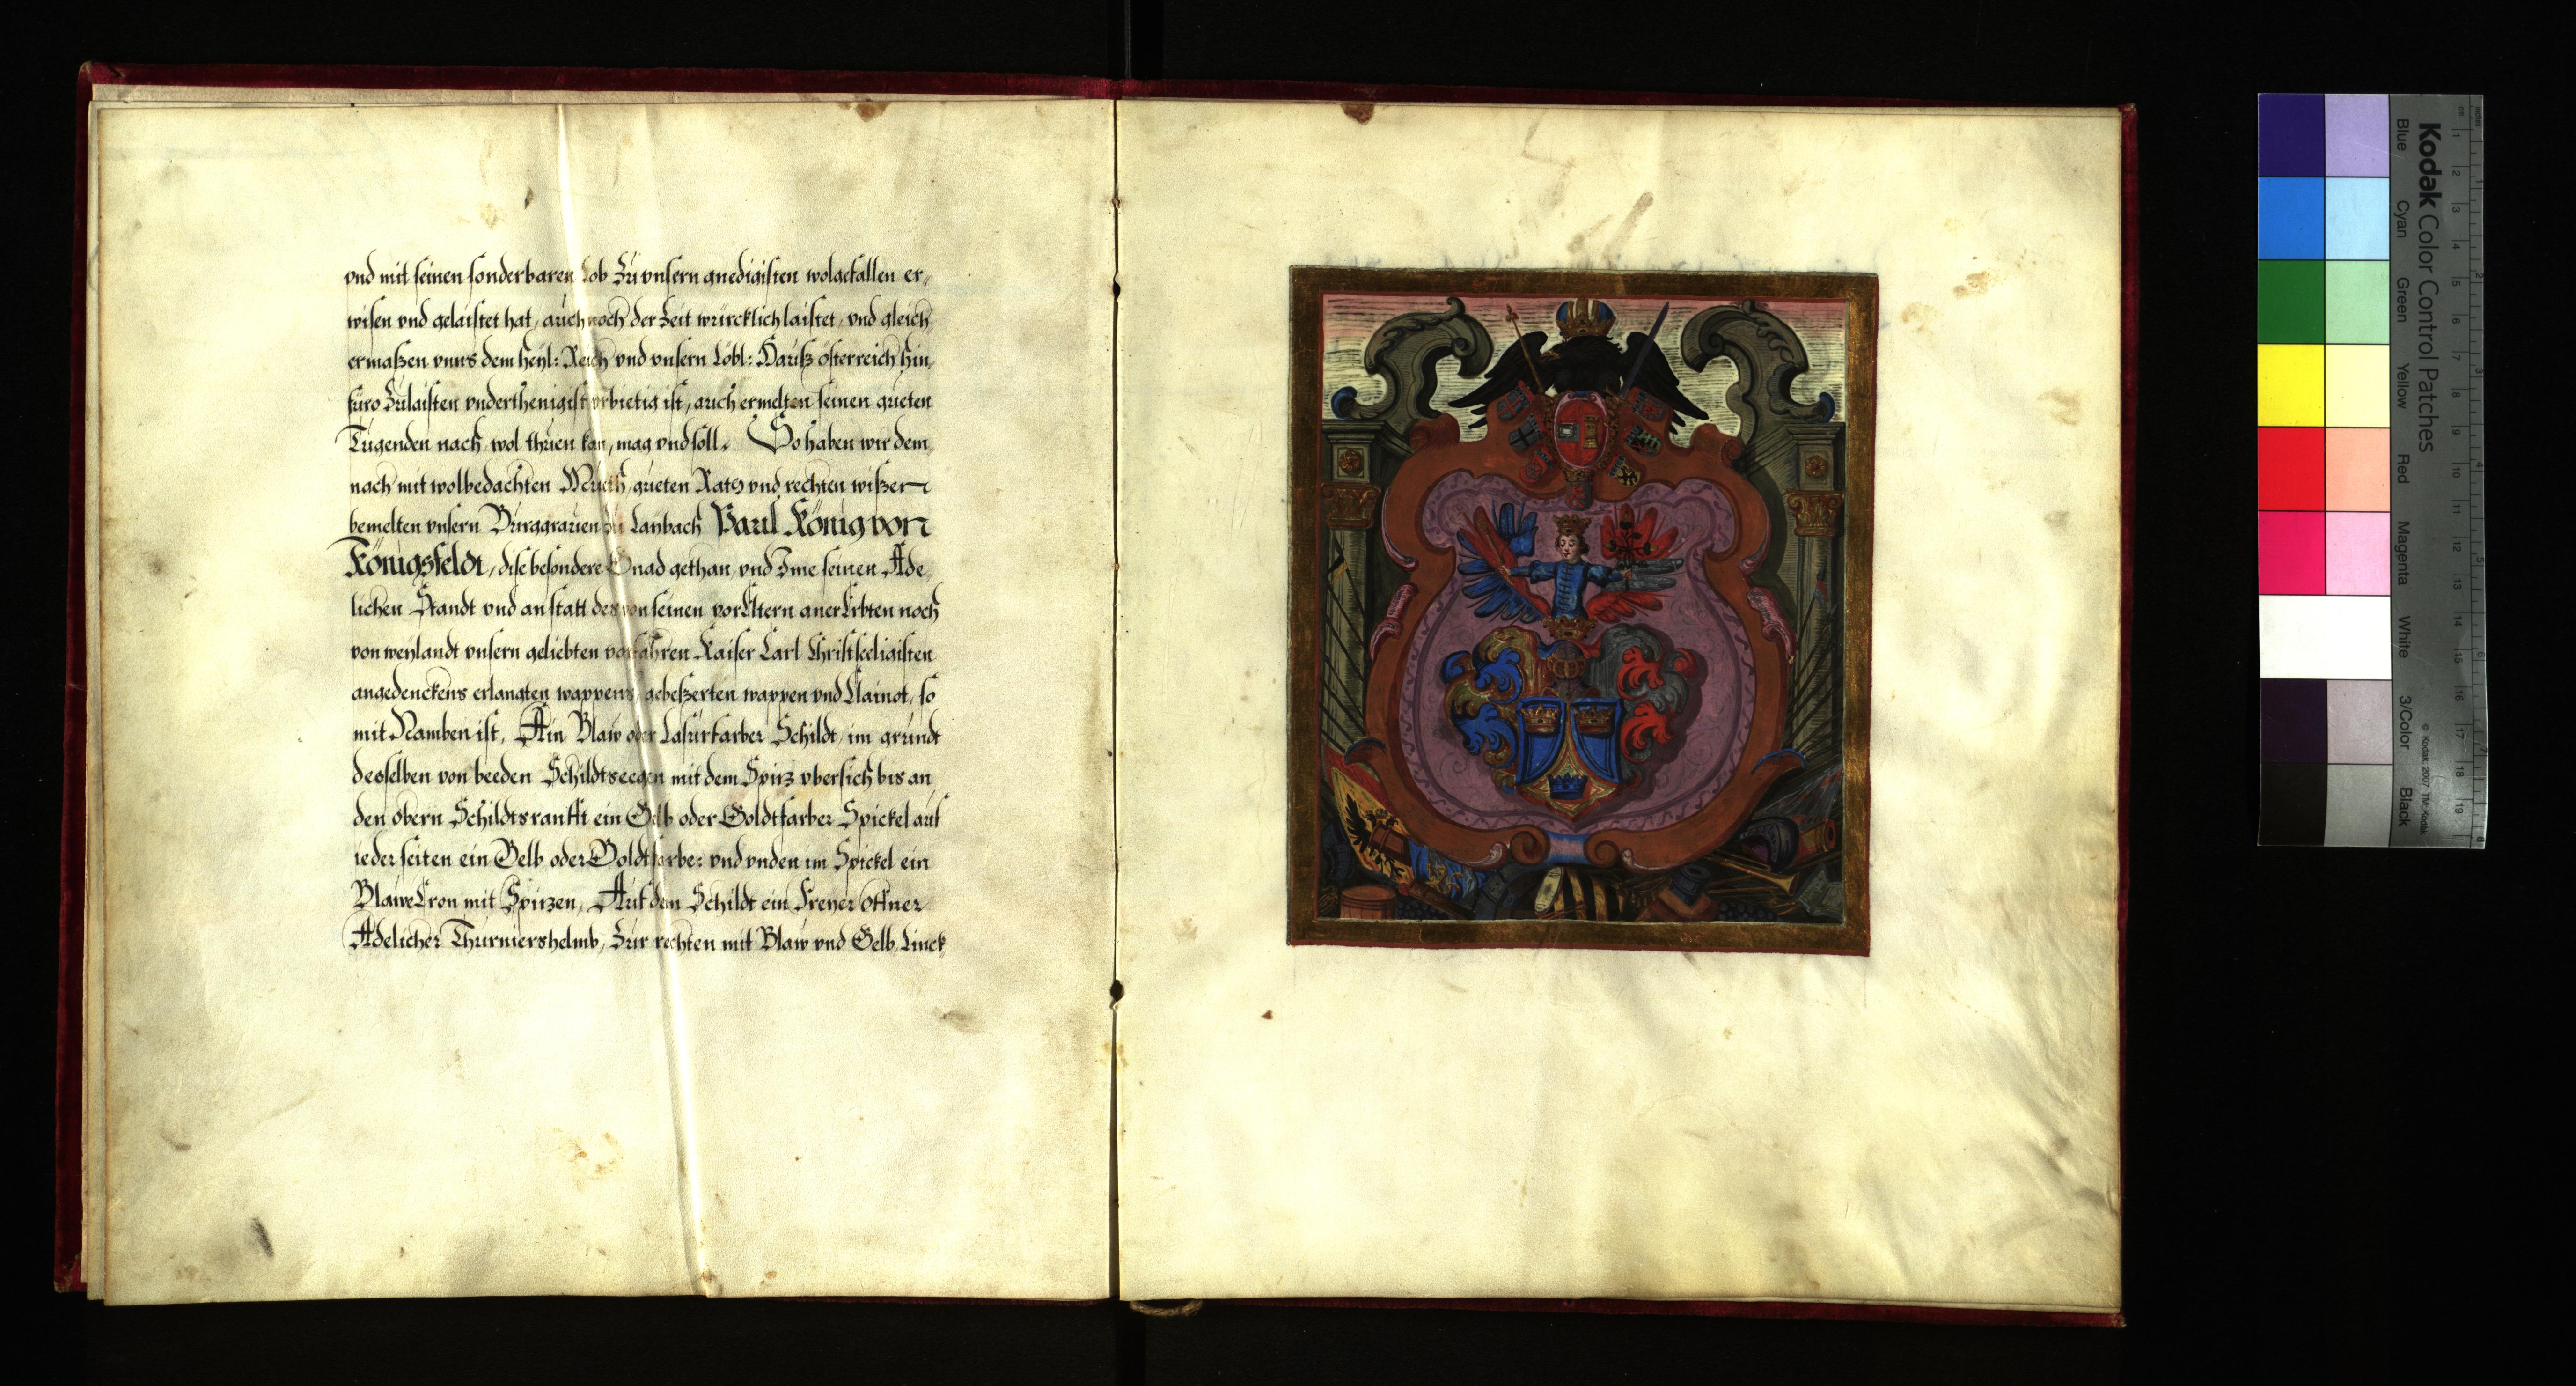 vnd mit seinen sonderbaren Lob Zu vnsern gnedigisten wolgefallen er,,
wisen vnd gelaistet hat, auch noch der Zeit würcklich laistet, vnd gleich
ermaßen vnns dem Heyl: Reich vnd vnsern Löbl: Hauß österreich hin,,
füro Zulaisten vnderthenigist erbietig ist, auch ermelten seinen gueten
Tugenden nach, wol thuen kan, mag vnd soll. So haben wir dem,,
nach mit wolbedachten Mueth, gueten Rats vnd rechten wißen
bemelten vnsern Burggrauen zu Laybach Paul König von
Königsfeldt, dise besondere Gnad gethan, vnd Ime seinen Ade,,
lichen Standt vnd anstatt des von seinen vorEltern anerErbten noch
von weylandt vnsern geliebten vorfahren Kaiser Carl Christseeligisten
angedenckens erlangten wappens, gebeßerten wappen vnd Clainot, so
mit Namben ist, Ain Blaw oder Lasurfarber Schildt, im grundt
desselben von beeden Schildtseegen mit dem Spitz vbersich bis an
den obern Schildtsranfft ein Gelb oder Goldtfarber Spickel auf
ieder seiten ein Gelb oder Goldtfarbe: vnd vnden im Spickel ein
Blawe Cron mit Spitzen, Auf dem Schildt ein Freyer offner
Adelicher Thurniershelmb, Zur rechten mit Blaw vnd Gelb, Linck,,
Kodak Color Control Patches
Blue Cyan Green Yellow Red Magenta White 3/Color Black
© Kodak, 2007 TM: Kodak
cm 1 2 3 4 5 6 7 8 9 10 11 12 13 14 15 16 17 18 19
inches 1 2 3 4 5 6 7 8